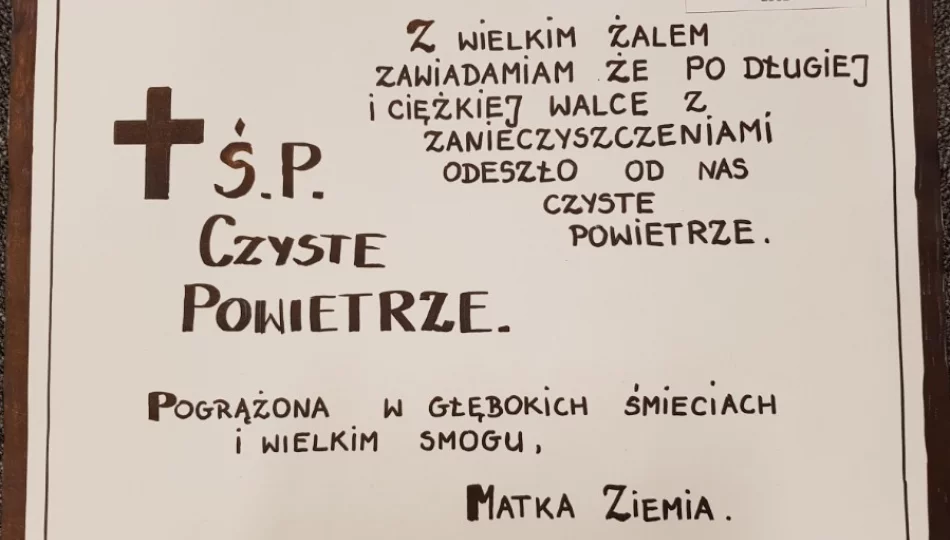 Z WIELKIM ŻALEM
ZAWIADAMIAM ŻE PO DŁUGIEJ
I CIĘŻKIEJ WALCE Z
ZANIECZYSZCZENIAMI
ODESZŁO OD NAS
CZYSTE
POWIETRZE.
Ś.P.
CZYSTE
POWIETRZE.
POGRĄŻONA W GŁĘBOKICH ŚMIECIACH
I WIELKIM SMOGU,
MATKA ZIEMIA.